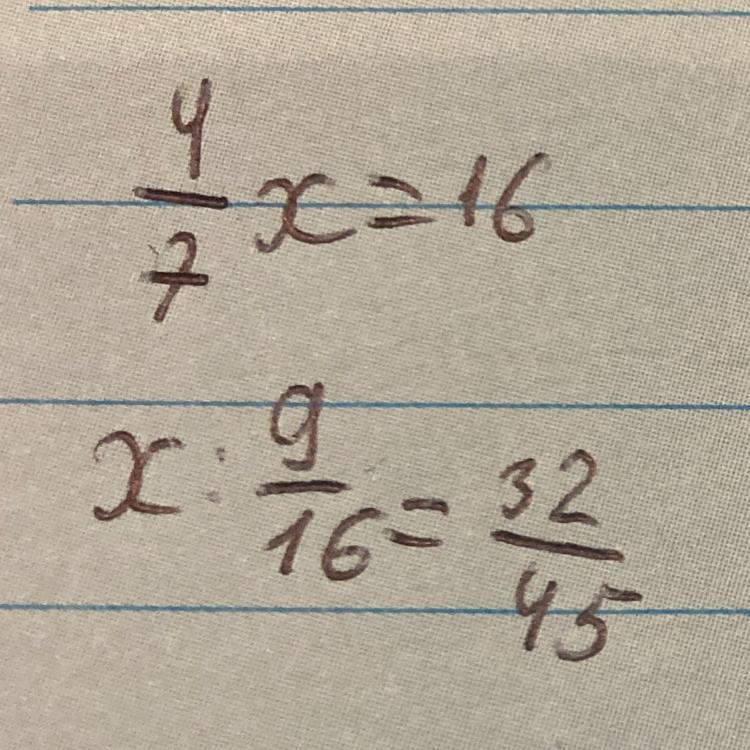 4/7 x = 16
x : 9/16 = 32/45